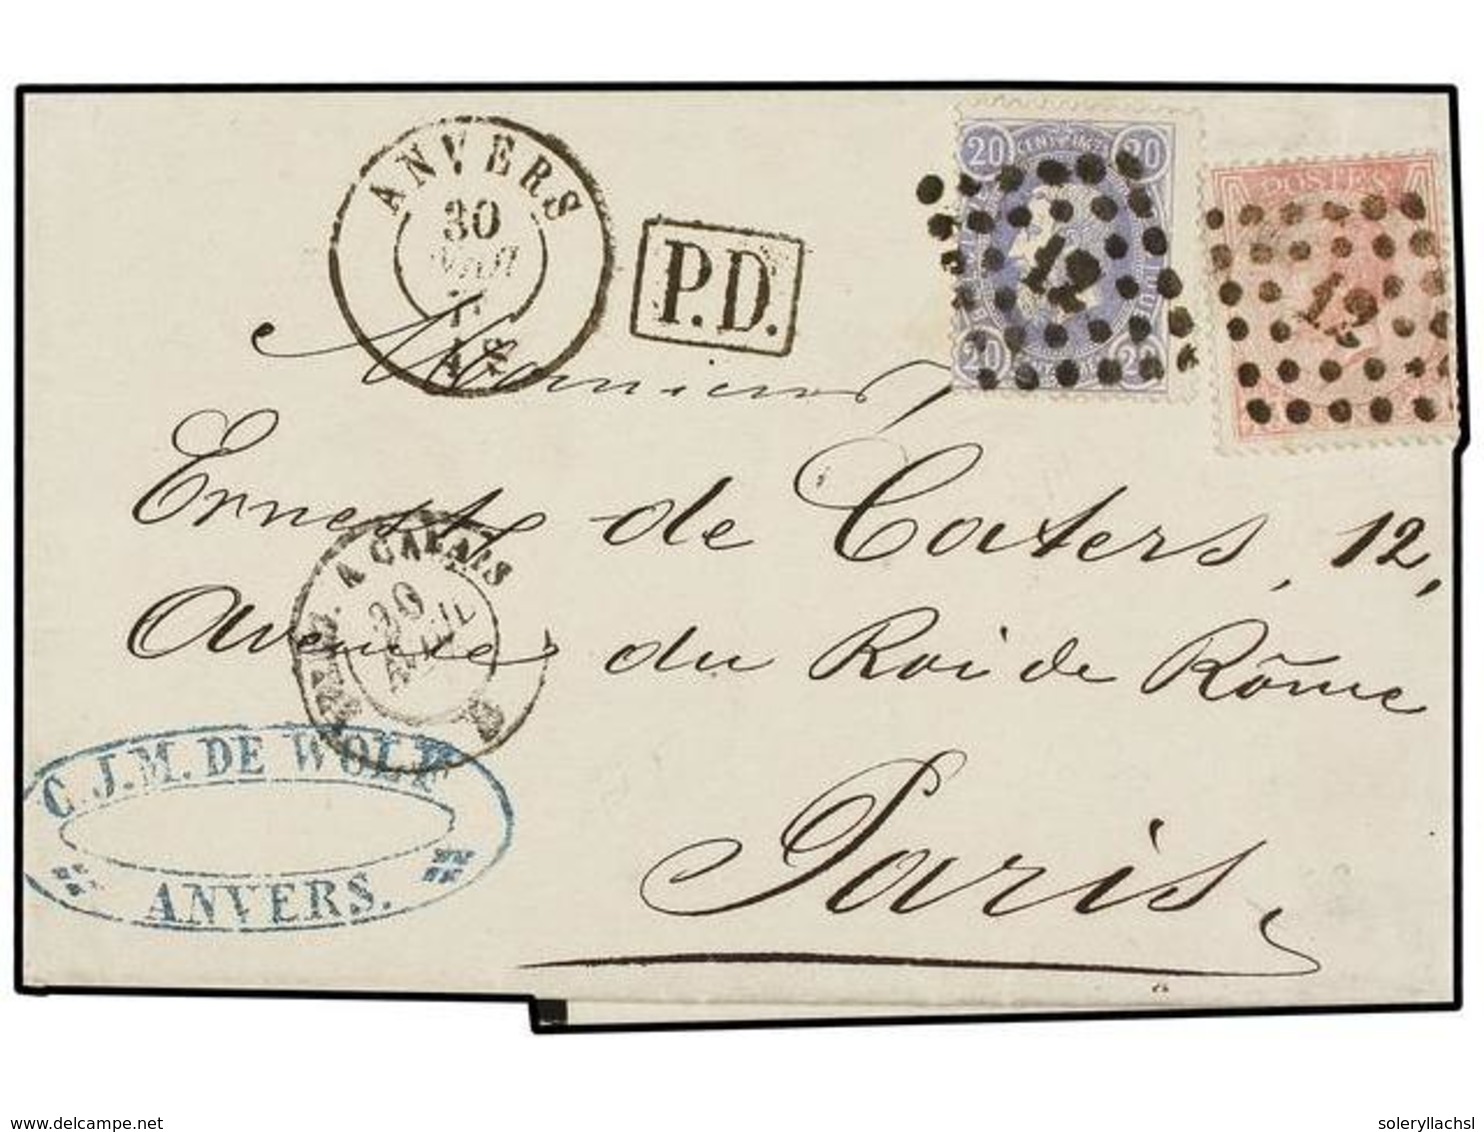 ANVERS
30
P.D.
20 CENT 20
12
20 20
POSTES
12
Monsieur
Ernest de Caters, 12,
Avenue du Roi de Rôme
Paris
A CALAIS
30
AVRIL
C.J.M. DE WOLF
ANVERS.
www.delcampe.net
soleryllachsl